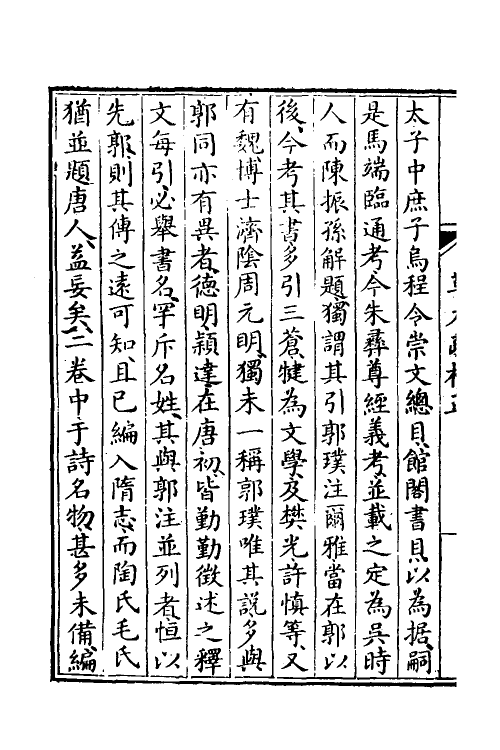 太子中庶子烏程令崇文總目館閣書目以為據嗣
是馬端臨通考今朱彝尊經義考並載之定為吳時
人而陳振孫解題獨謂其引郭璞注爾雅當在郭以
後今考其書多引三蒼犍為文學及樊光許慎等又
有魏博士濟陰周元明獨未一稱郭璞唯其說多與
郭同亦有異者德明穎達在唐初皆勤勤徵述之釋
文每引必舉書名罕斥名姓其與郭注並列者恒以
先郭則其傳之遠可知且已編入隋志而陶氏毛氏
猶並題唐人益妄矣二卷中于詩名物甚多未備編